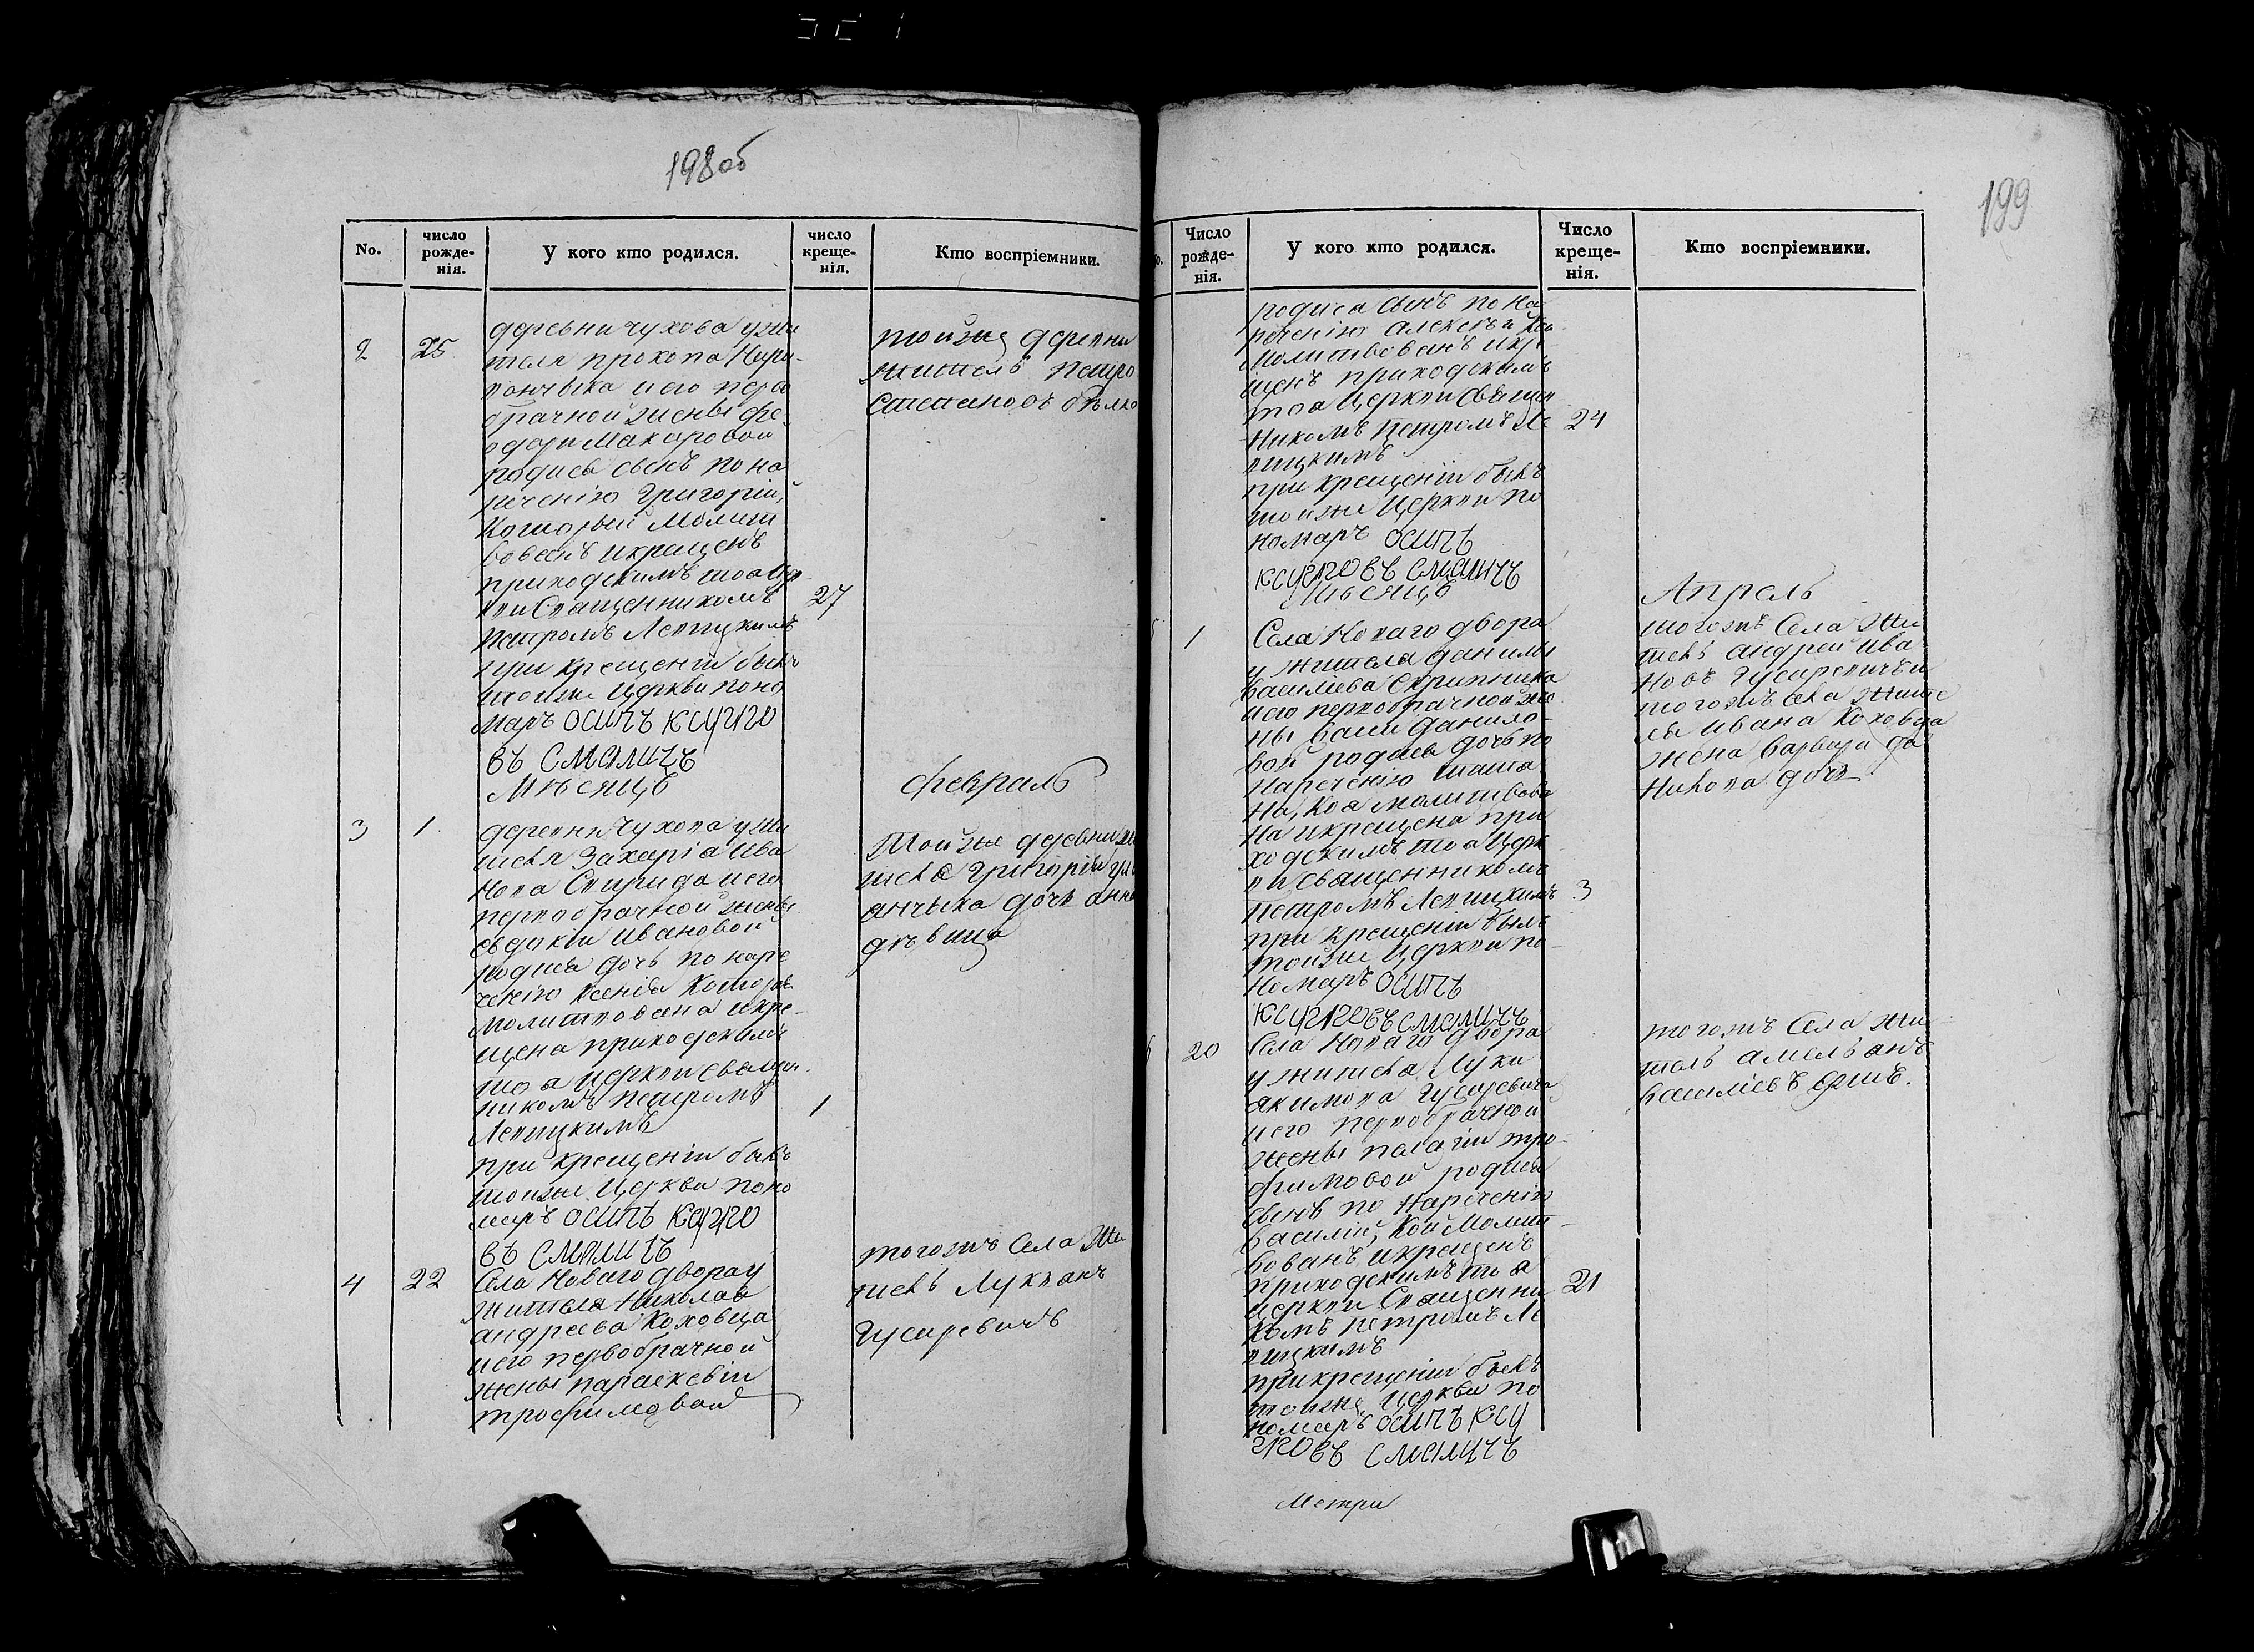 198об
No.
число рожде-нія.
У кого кто родился.
число креще-нія.
Кто воспріемники.
2
25
деревни чухова у жи
теля прокопа
и его перво
брачной жены фе
одори Макаровой
родися сынъ по на
реченію Григорій,
Который Молит
вованъ и крещенъ
приходскимъ тоя Цер
кви Священникомъ
27
Петромъ Лепицкимъ
при крещеніи былъ
тойже Церкви поно
марь осипъ
въ
Мѣсяцъ
тойже деревни
житель петро
Степановъ
февраль
3
1
деревни Чухова у жи
теля Захаріа Ива
нова Спирида и его
первобрачной жены
евдокіи Ивановой
родися дочь по наре
ченію Ксеніа Котора
Молитвована и кре-
щена приходскимъ
тоа церкви священ-
никомъ петромъ
1
Лепицкимъ
при крещеніи былъ
тойже Церкви поно
марь осипъ
въ
Тойже деревни жи
теля Григоріа
дочь анна
дѣвица
4
22
Села Новаго двора у
жителя Николая
андреева Коховца
и его первобрачной
жены параскевіи
трофимовой
тогожъ Села Жи
тель Лукьянъ
Гусаревичъ
199
Число рожде-нія.
У кого кто родился.
Число креще-нія.
Кто воспріемники.
родися сынъ по на
реченію алексѣй
молитвованъ и кре-
щенъ приходскимъ
тоа Церкви Священ
никомъ Петромъ Ле
24
пицкимъ
при крещеніи былъ
тойже Церкви по
номарь осипъ
въ
Мѣсяцъ
Апрель
1
Села Новаго двора
у жителя данилы
Василіева Скрипника
и его первобрачной же
ны данило-
вой родися дочь по
наречению татіа
на, Коя молитвова
на и крещена при
ходскимъ тоа Церк
ви священникомъ
Петромъ Лепицкимъ
3
при крещеніи былъ
тойже Церкви по-
номарь осипъ
въ
тогожъ Села Жи
тель андрей Ива
новъ Гусаревичъ и
тогожъ села жите
ля Ивана Коховца
жена варвара да
дочь
20
Села Новаго двора
у жителя Луки
акимова Гусаревича
и его первобрачной
жены пелагіи тро-
фимовой родися
сынъ по нареченію
Василій, Кой Молит-
вованъ и крещенъ
приходскимъ тоа
церкви Священни
21
комъ петромъ Ле
пицкимъ
при крещеніи былъ
тойже Церкви по
номарь осипъ
въ
тогожъ Села жи-
тель амельянъ
Василіевъ
Метри